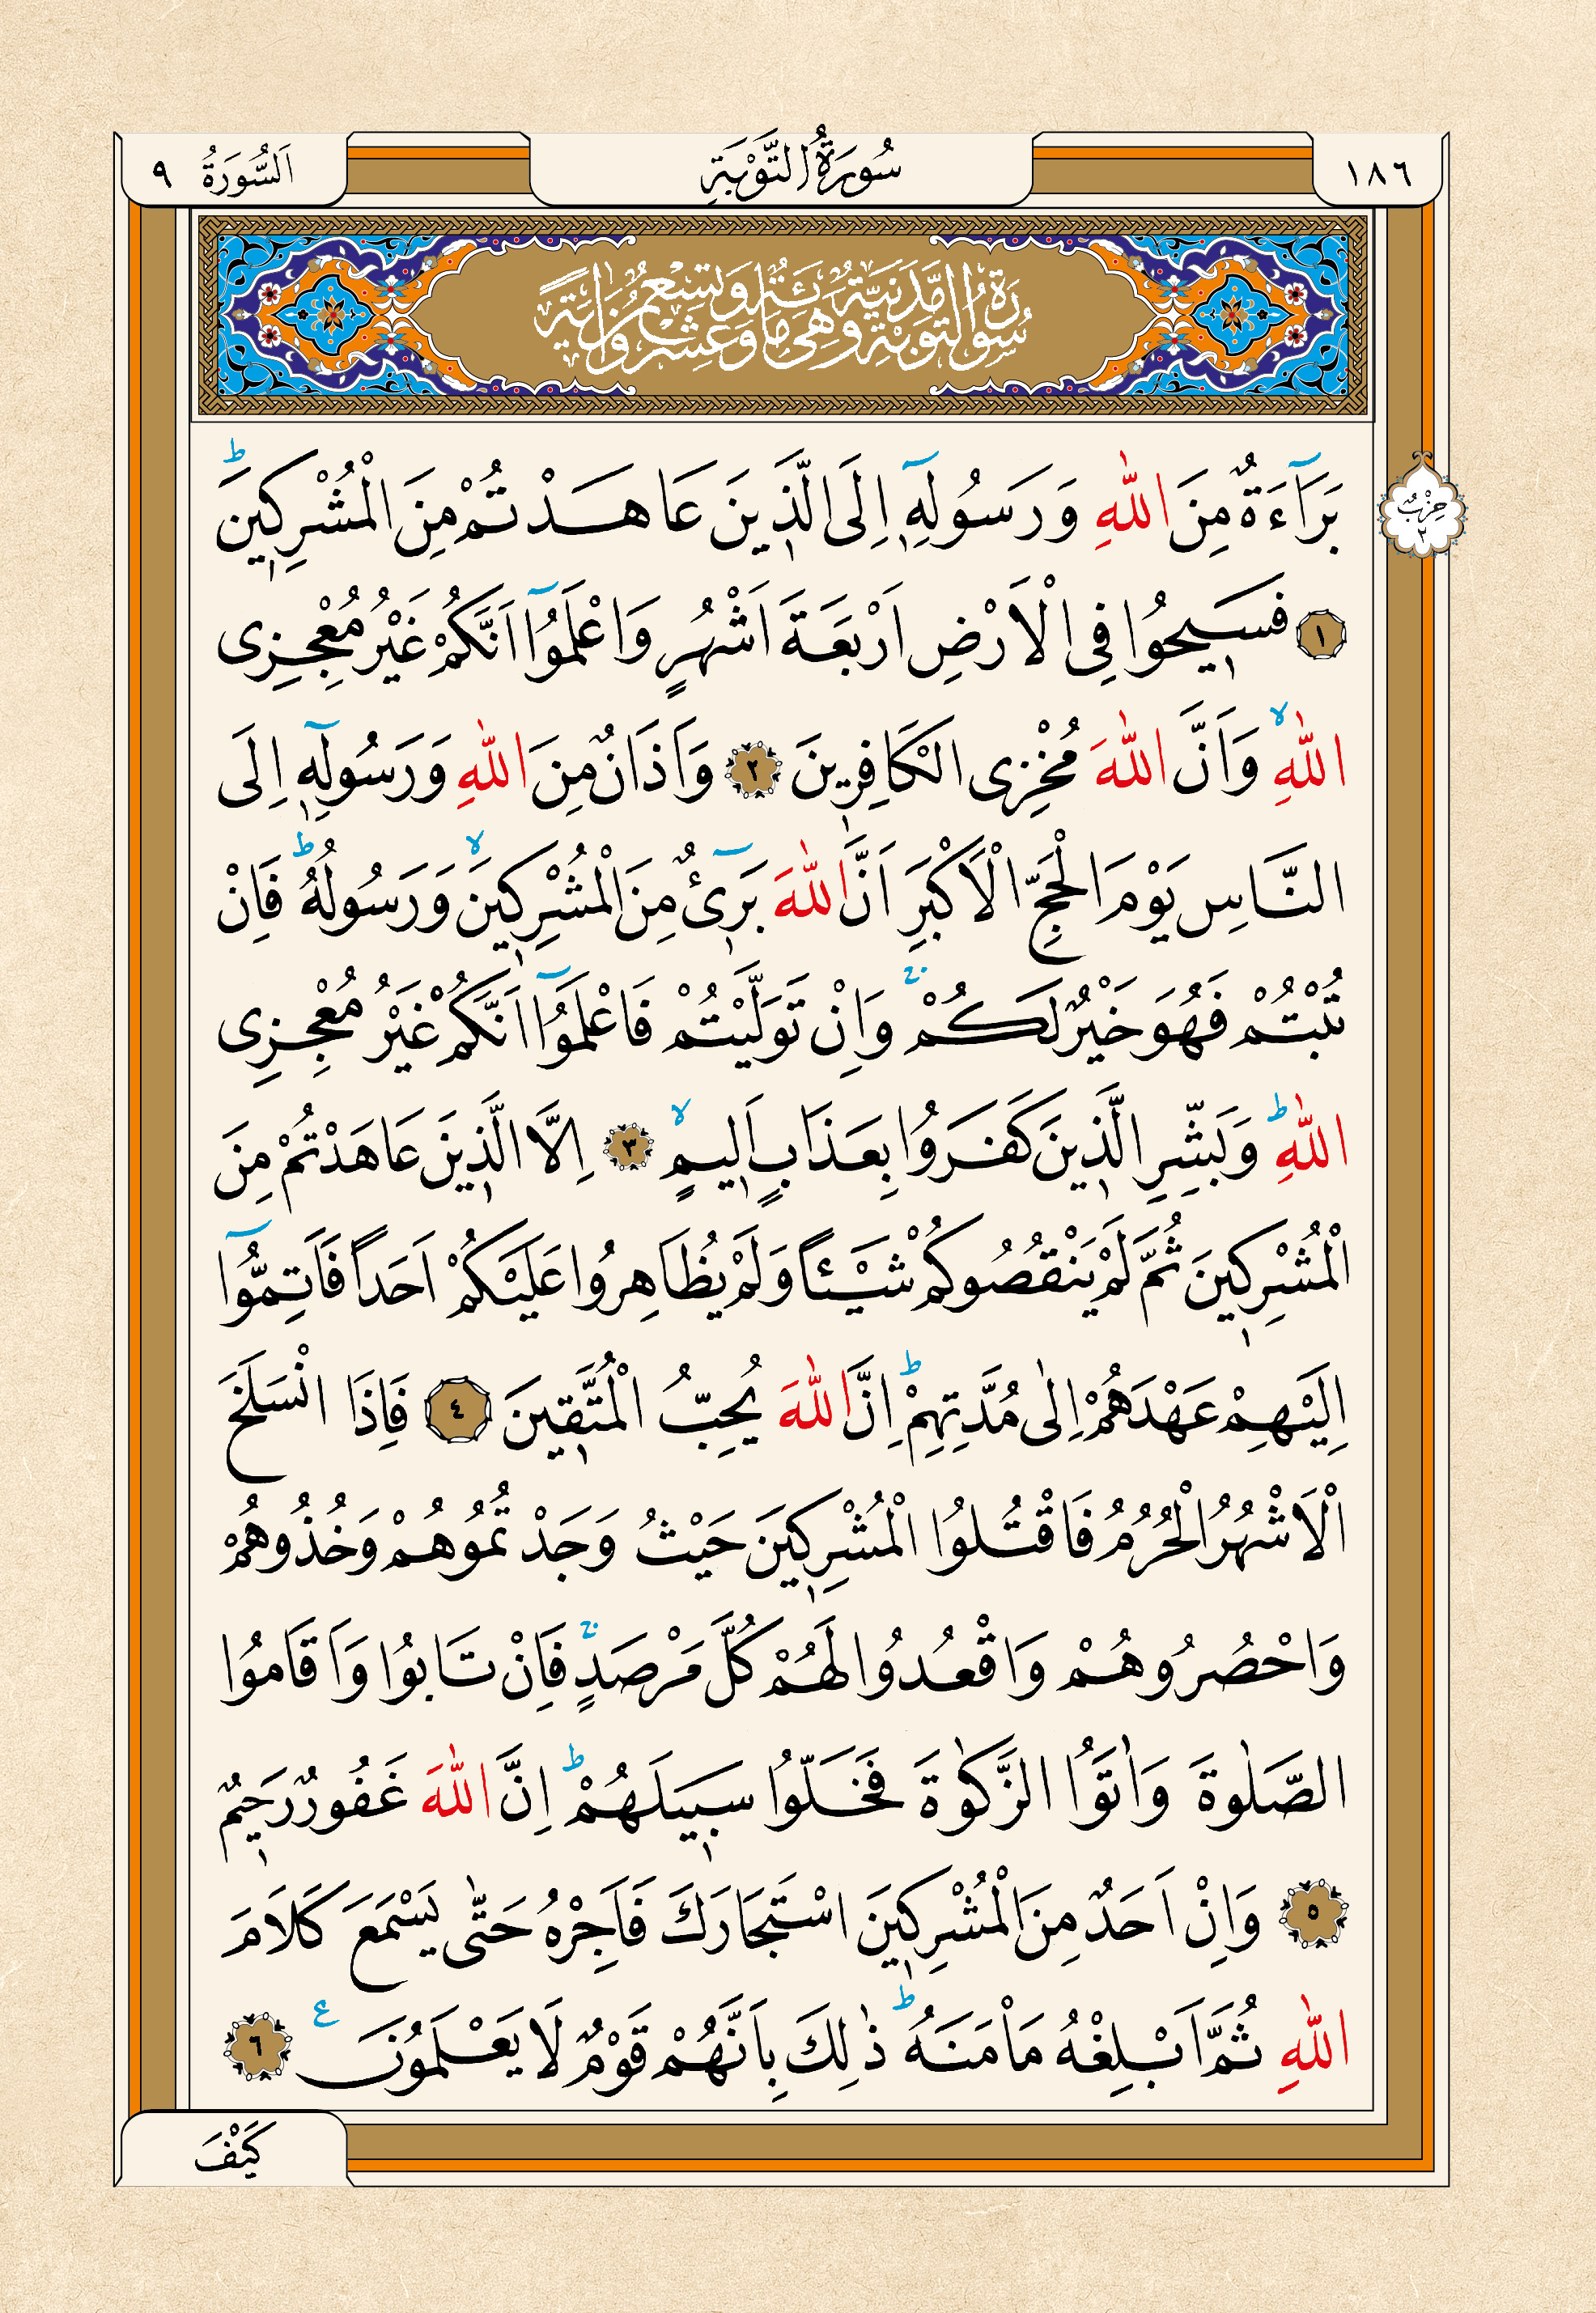 ١٨٦
سُورَةُ التَّوْبَةِ
اَلسُّورَةُ ٩
سُورَةُ التَّوْبَةِ مَدَنِيَّةٌ وَهِىَ مِائَةٌ وَتِسْعٌ وَعِشْرُونَ اٰيَةً
حِزْبٌ ٢
بَرَٓاءَةٌ مِنَ اللّٰهِ وَرَسُولِهٖٓ اِلَى الَّذٖينَ عَاهَدْتُمْ مِنَ الْمُشْرِكٖينَؕ
﴿١﴾ فَسٖيحُوا فِى الْاَرْضِ اَرْبَعَةَ اَشْهُرٍ وَاعْلَمُٓوا اَنَّكُمْ غَيْرُ مُعْجِزِى
اللّٰهِۙ وَاَنَّ اللّٰهَ مُخْزِى الْكَافِرٖينَ ﴿٢﴾ وَاَذَانٌ مِنَ اللّٰهِ وَرَسُولِهٖٓ اِلَى
النَّاسِ يَوْمَ الْحَجِّ الْاَكْبَرِ اَنَّ اللّٰهَ بَرٖٓىءٌ مِنَ الْمُشْرِكٖينَۙ وَرَسُولُهُؕ فَاِنْ
تُبْتُمْ فَهُوَ خَيْرٌ لَكُمْۚ وَاِنْ تَوَلَّيْتُمْ فَاعْلَمُٓوا اَنَّكُمْ غَيْرُ مُعْجِزِى
اللّٰهِؕ وَبَشِّرِ الَّذٖينَ كَفَرُوا بِعَذَابٍ اَلٖيمٍۙ ﴿٣﴾ اِلَّا الَّذٖينَ عَاهَدْتُمْ مِنَ
الْمُشْرِكٖينَ ثُمَّ لَمْ يَنْقُصُوكُمْ شَيْـًٔا وَلَمْ يُظَاهِرُوا عَلَيْكُمْ اَحَداً فَاَتِمُّٓوا
اِلَيْهِمْ عَهْدَهُمْ اِلٰى مُدَّتِهِمْؕ اِنَّ اللّٰهَ يُحِبُّ الْمُتَّقٖينَ ﴿٤﴾ فَاِذَا انْسَلَخَ
الْاَشْهُرُ الْحُرُمُ فَاقْتُلُوا الْمُشْرِكٖينَ حَيْثُ وَجَدْتُمُوهُمْ وَخُذُوهُمْ
وَاحْصُرُوهُمْ وَاقْعُدُوا لَهُمْ كُلَّ مَرْصَدٍۚ فَاِنْ تَابُوا وَاَقَامُوا
الصَّلٰوةَ وَاٰتَوُا الزَّكٰوةَ فَخَلُّوا سَبٖيلَهُمْؕ اِنَّ اللّٰهَ غَفُورٌ رَحٖيمٌ
﴿٥﴾ وَاِنْ اَحَدٌ مِنَ الْمُشْرِكٖينَ اسْتَجَارَكَ فَاَجِرْهُ حَتّٰى يَسْمَعَ كَلَامَ
اللّٰهِ ثُمَّ اَبْلِغْهُ مَاْمَنَهُؕ ذٰلِكَ بِاَنَّهُمْ قَوْمٌ لَا يَعْلَمُونَ ع ﴿٦﴾
كَيْفَ